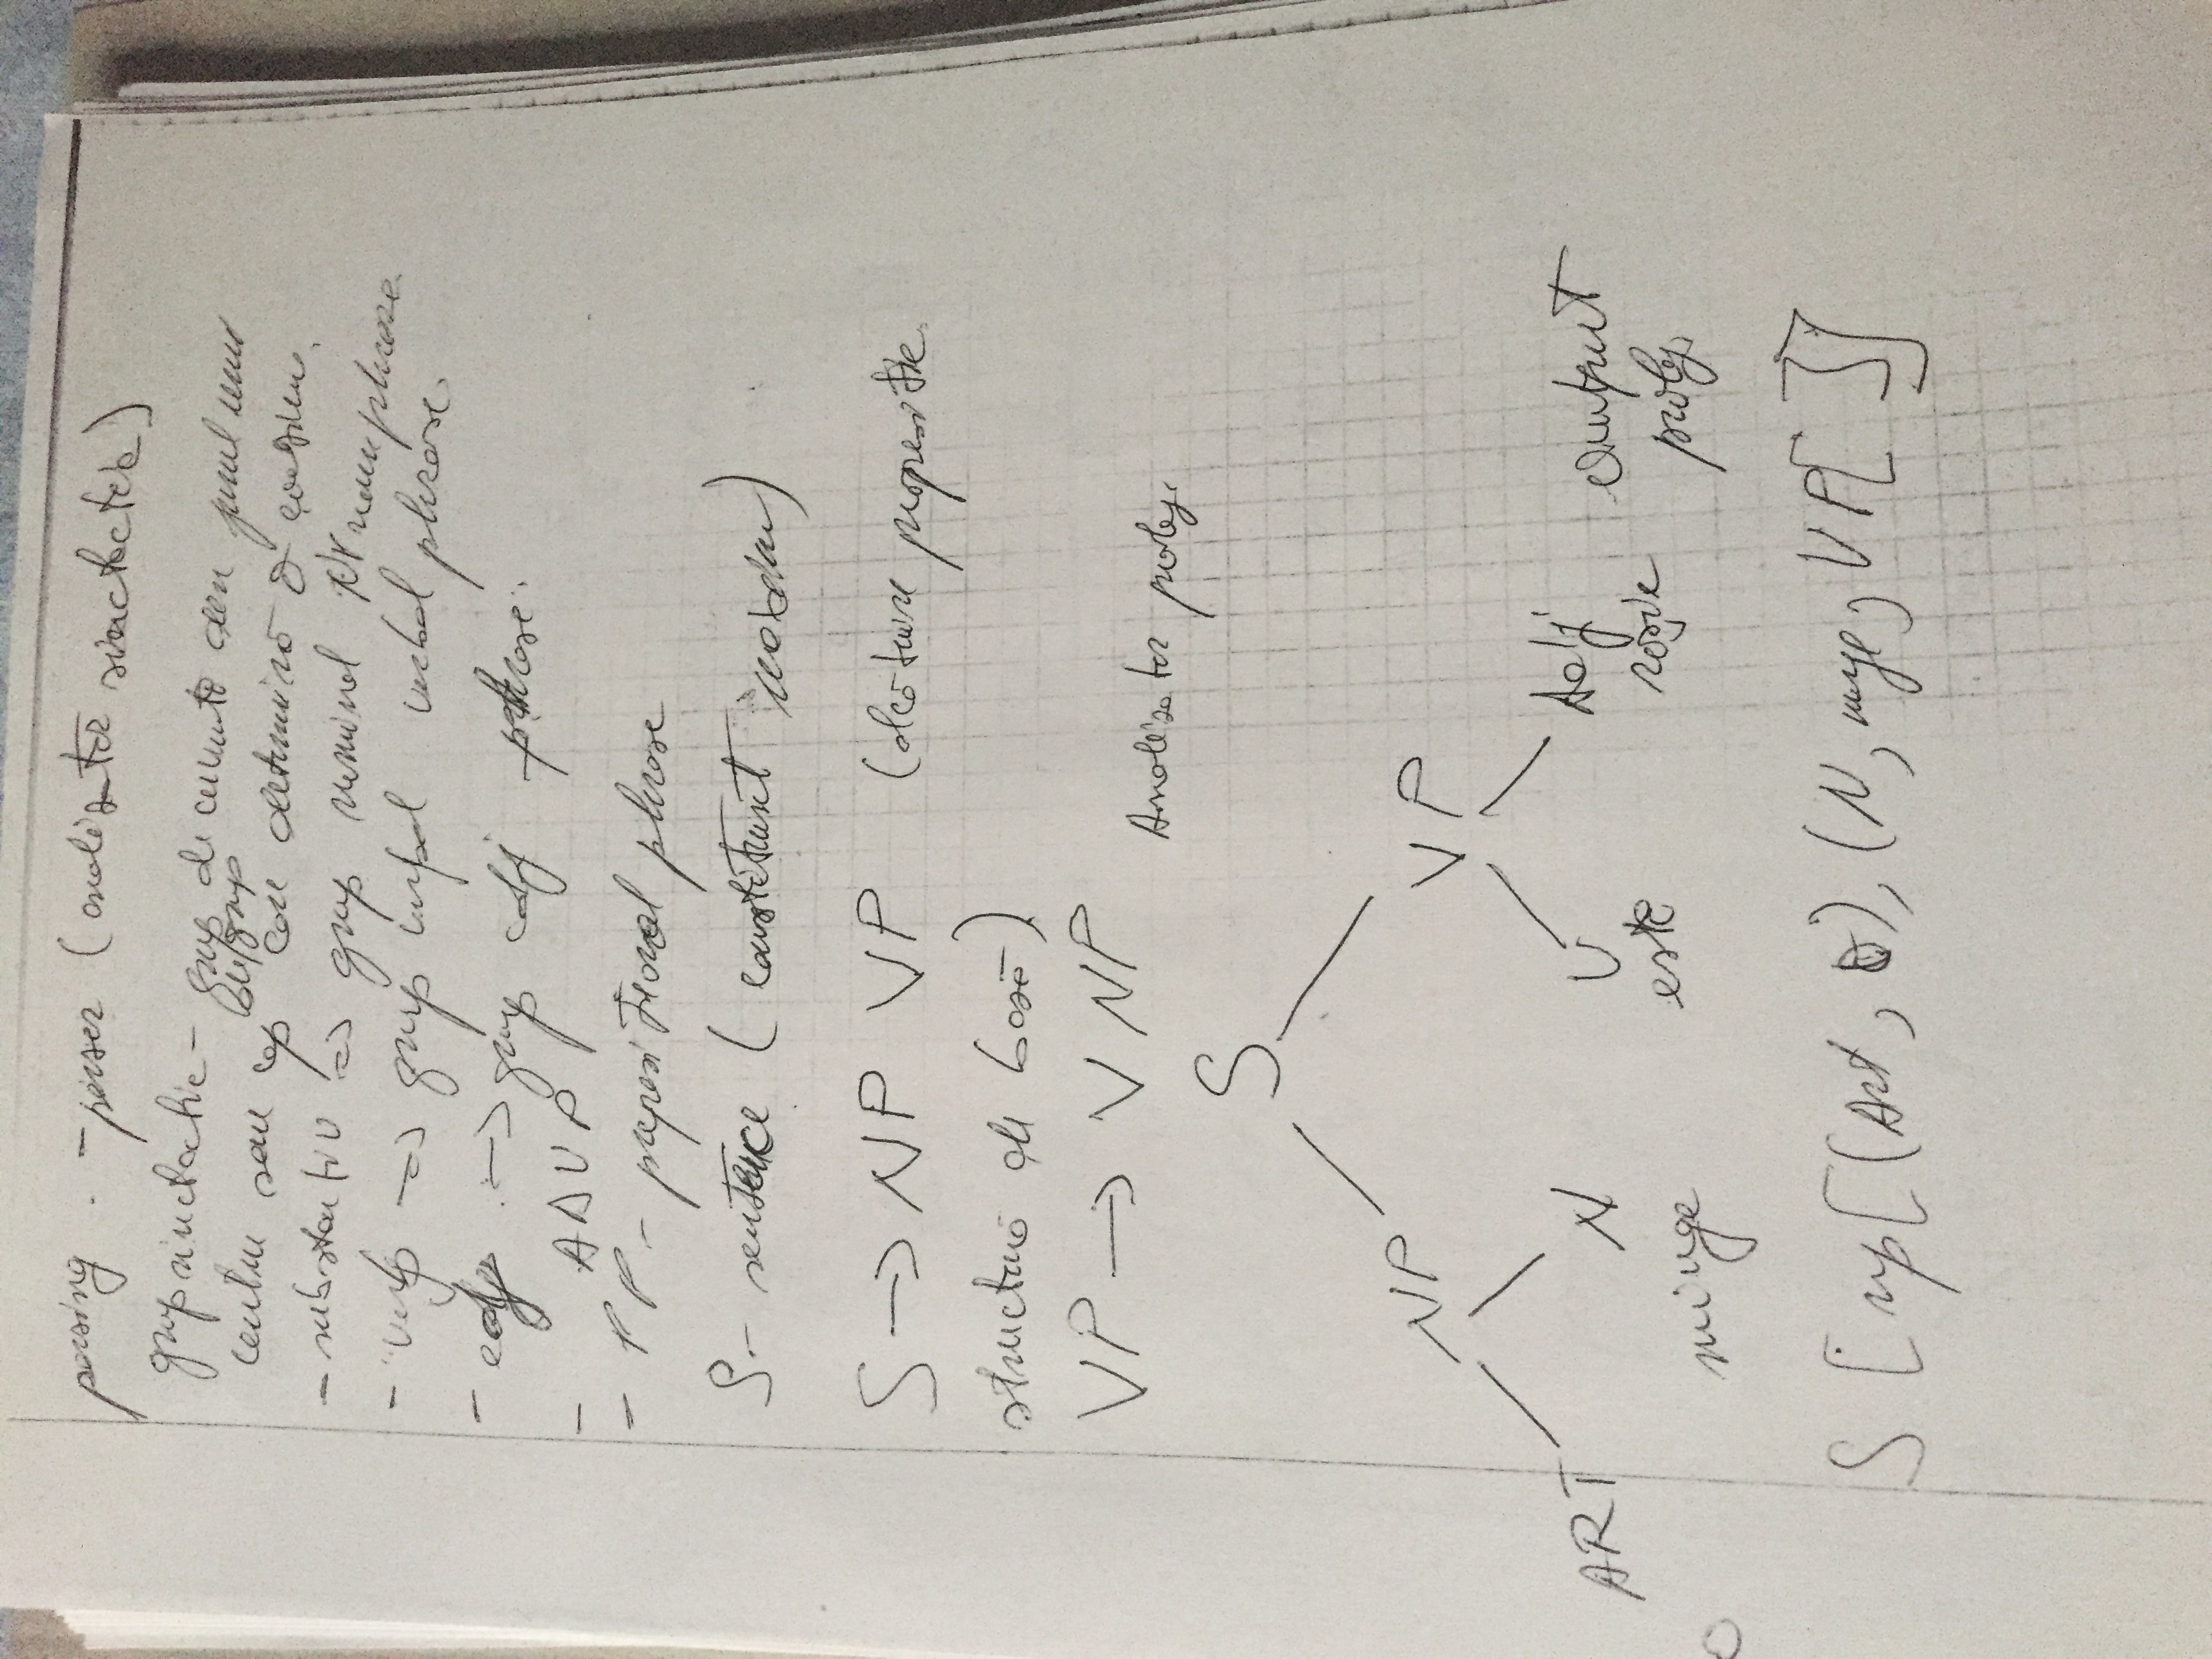 parsing - parser (analizator sintactic)
grup sintactic - grup de cuvinte din jurul unui
de/grup
centru sau cap care determină o
- substantiv => grup nominal NP noun phrase.
- verb => grup verbal verbal phrase.
- adj -> grup adj phrase.
- ADVP
- PP - prepositional phrase
S - sentence (constituent)
S -> NP VP (alcătuire propoziție
structură de bază).
VP -> V NP
Analizator prolog.
S
NP VP
ART N V Adj Output
minge este roșie prolog.
S [np[(Art, 0), (N, minge) VP[ ]]]